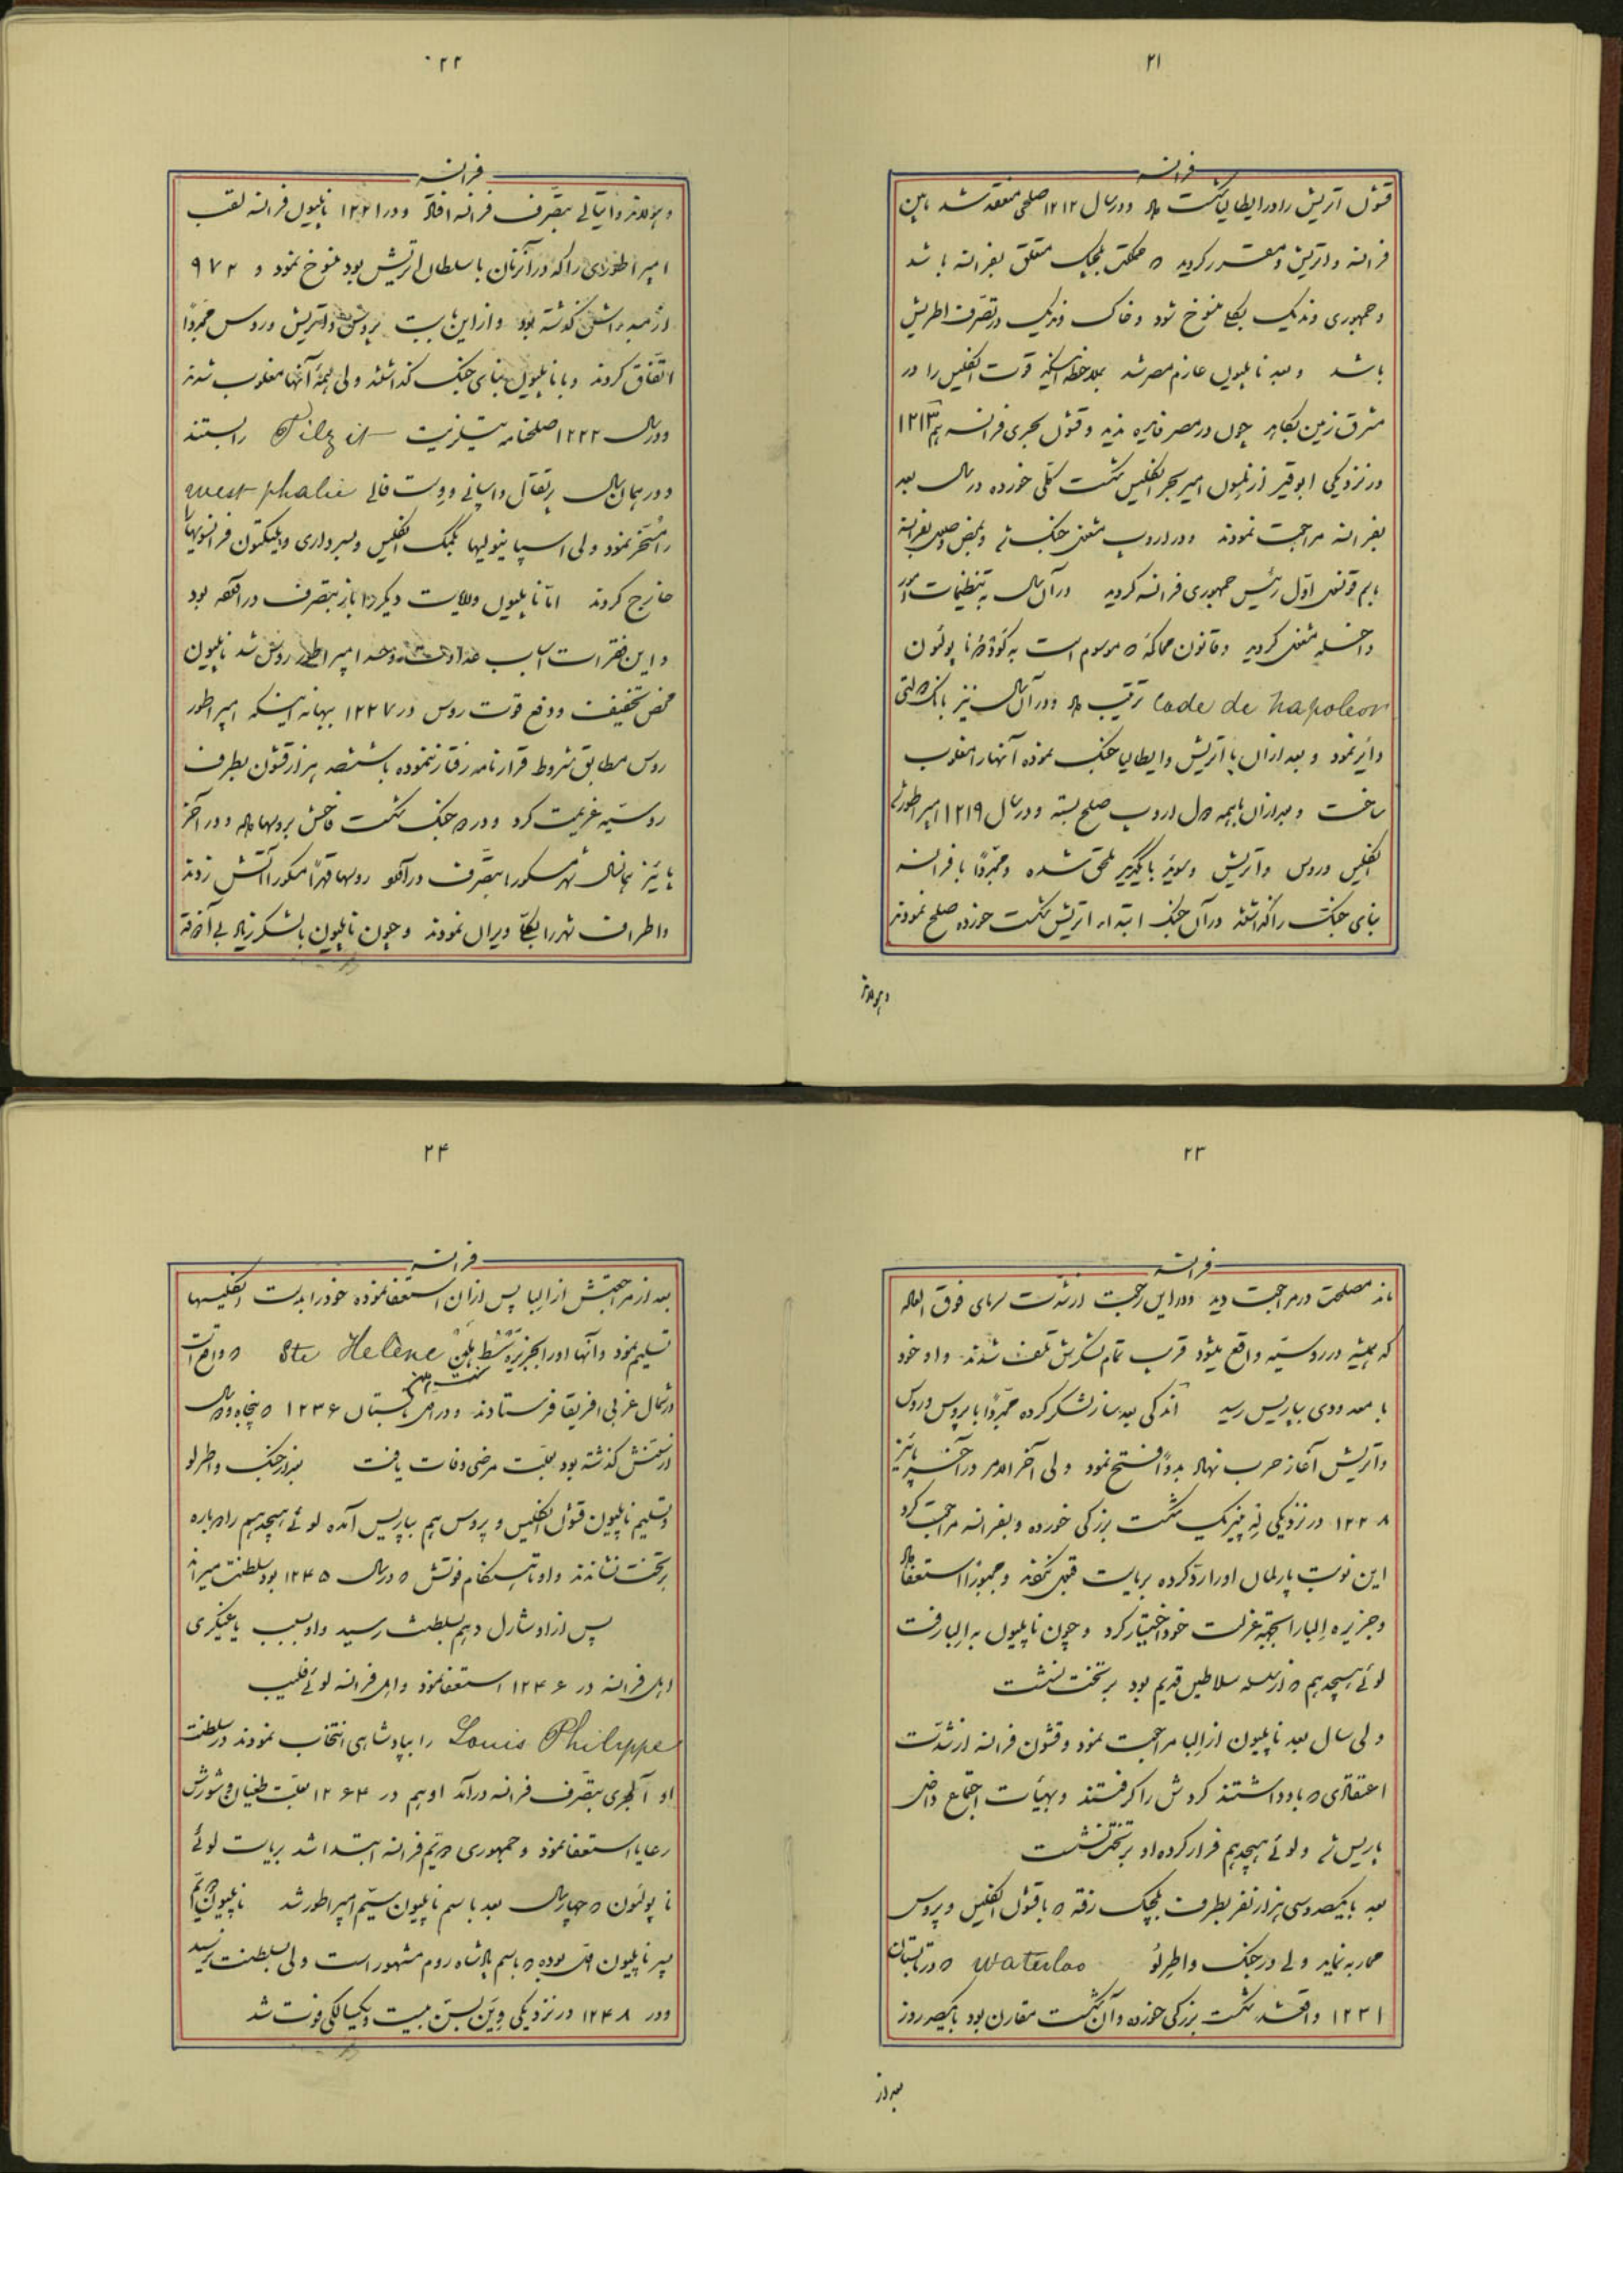 ۲۱
فرانسه
قشون اتریش را در ایطالیا شکست داد و در سال ۱۲۱۲ صلحی منعقد شد مابین
فرانسه و اتریش و مقرر گردید که مملکت بلجیک متعلق بفرانسه باشد
و جمهوری وندیک بکلی منسوخ شود و خاک وندیک در تصرف اطریش
باشد و بعد ناپلیون عازم مصر شد بملاحظه اینکه قوت انگلیس را در
مشرق زمین بکاهد چون در مصر فایده ندید و قشون بحری فرانسه هم ۱۲۱۳
در نزدیکی ابوقیر از نلسون امیر بحر انگلیس شکست کلی خورده در سال بعد
بفرانسه مراجعت نمودند و در اروپ مشغول جنگ شد و بمحض وصول بفرانسه
باسم قونسل اول رئیس جمهوری فرانسه گردید در آن سال به تنظیمات امور
داخله مشغول گردید و قانون محاکمه که موسوم است به کود ناپولئون
Code de Napoleon ترتیب داد و در آن سال نیز بانک دولتی
دایر نمود و بعد از آن با اتریش و ایطالیا جنگ نموده آنها را مغلوب
ساخت و بعد از آن با همه دول اروپ صلح بسته و در سال ۱۲۱۹ امپراطور شد
انگلیس و روس و اتریش و سوئد با یکدیگر ملحق شده و مجدداً با فرانسه
بنای جنگ را گذاشتند در آن جنگ ابتداء اتریش شکست خورده صلح نمودند
و هولاند
۲۲
فرانسه
و هولاند و ایتالی بتصرف فرانسه افتاد و در ۱۲۲۱ ناپلیون فرانسه لقب
امپراطوری را که در آن زمان با سلطان اتریش بود منسوخ نمود و ۹۷۲
از مبدءاش گذشته بود و از این بابت پروس و اتریش و روس مجدداً
اتفاق کردند و با ناپلیون بنای جنگ گذاشتند ولی همهٔ آنها مغلوب شدند
و در سال ۱۲۲۲ صلحنامه تیلزیت Tilzit را بستند
و در همان سال پرتقال و اسپانی و وست فالی west phalie
را مسخر نمود ولی اسپانیولیها بکمک انگلیس و بسرداری ویلنگتون فرانسویها را
خارج کردند اما ناپلیون ولایات دیگر را باز بتصرف در آورده بود
و این فقرات اسباب عداوت و حسد امپراطور روس شد ناپلیون
محض تخفیف و دفع قوت روس در ۱۲۲۷ ببهانه اینکه امپراطور
روس مطابق شروط قرارنامه رفتار ننموده با ششصد هزار قشون بطرف
روسیه عزیمت کرد و در دو جنگ شکست فاحش بروسها داد و در آخر
پائیز همانسال شهر مسکو را بتصرف در آورد روسها قهراً مسکو را آتش زدند
و اطراف شهر را بکلی ویران نمودند و چون ناپلیون با لشکر زیاد بی آذوقه
۲۳
فرانسه
ماند مصلحت در مراجعت دید و در این رجعت از شدت سرمای فوق العاده
که همیشه در روسیه واقع میشود قریب تمام لشکرش تلف شدند و او خود
با معدودی بپاریس رسید اندکی بعد ساز لشکر کرده مجدداً با پروس و روس
و اتریش آغاز حرب نهاد بدواً فتح نمود ولی آخرالامر در آخر پائیز
۱۲۲۸ در نزدیکی لیپزیک شکست بزرگی خورده و بفرانسه مراجعت کرد
این نوبت پارلمان او را رد کرده بریاست قبول نکردند و مجبوراً استعفا داد
و جزیره البا را بجهة عزلت خود اختیار کرد و چون ناپلیون به البا رفت
لوئی هیجدهم که از سلسله سلاطین قدیم بود بر تخت نشست
ولی سال بعد ناپلیون از البا مراجعت نمود و قشون فرانسه از شدت
اعتقادی که باو داشتند گردش را گرفتند و بهیئات اجتماع داخل
پاریس شد و لوئی هیجدهم فرار کرده او بر تخت نشست
بعد با یکصد و سی هزار نفر بطرف بلجیک رفته که با قشون انگلیس و پروس
محاربه نماید ولی در جنگ واطرلو Waterloo که در تابستان
۱۲۳۱ واقع شد شکست بزرگی خورده و آن شکست مقارن بود با یکصد روز
بعد از
۲۴
فرانسه
بعد از مراجعتش از البا پس از آن استعفا نموده خود را بدست انگلیسها
تسلیم نمود و آنها او را بجزیره سنت هلن Ste Helène که واقع است
در شمال غربی افریقا فرستادند و در اول تابستان ۱۲۳۶ که پنجاه و دو سال
از سنش گذشته بود بعلت مرضی وفات یافت بعد از جنگ واطرلو
و تسلیم ناپلیون قشون انگلیس و پروس هم بپاریس آمده لوئی هیجدهم را دوباره
بر تخت نشاندند و او تا هنگام فوتش که در سال ۱۲۴۵ بود سلطنت میراند
پس از او شارل دهم بسلطنت رسید و او بسبب یاغیگری
اهل فرانسه در ۱۲۴۶ استعفا نمود و اهل فرانسه لوئی فلیپ
Louis Philippe را بپادشاهی انتخاب نمودند در سلطنت
او الجری بتصرف فرانسه درآمد او هم در ۱۲۶۴ بعلت طغیان و شورش
رعایا استعفا نمود و جمهوری دویم فرانسه ابتدا شد بریاست لوئی
ناپولئون که چهار سال بعد باسم ناپلیون سیم امپراطور شد ناپلیون دویم
پسر ناپلیون اول بوده که باسم پادشاه روم مشهور است ولی بسلطنت نرسید
و در ۱۲۴۸ در نزدیکی وین بسن بیست و یکسالگی فوت شد